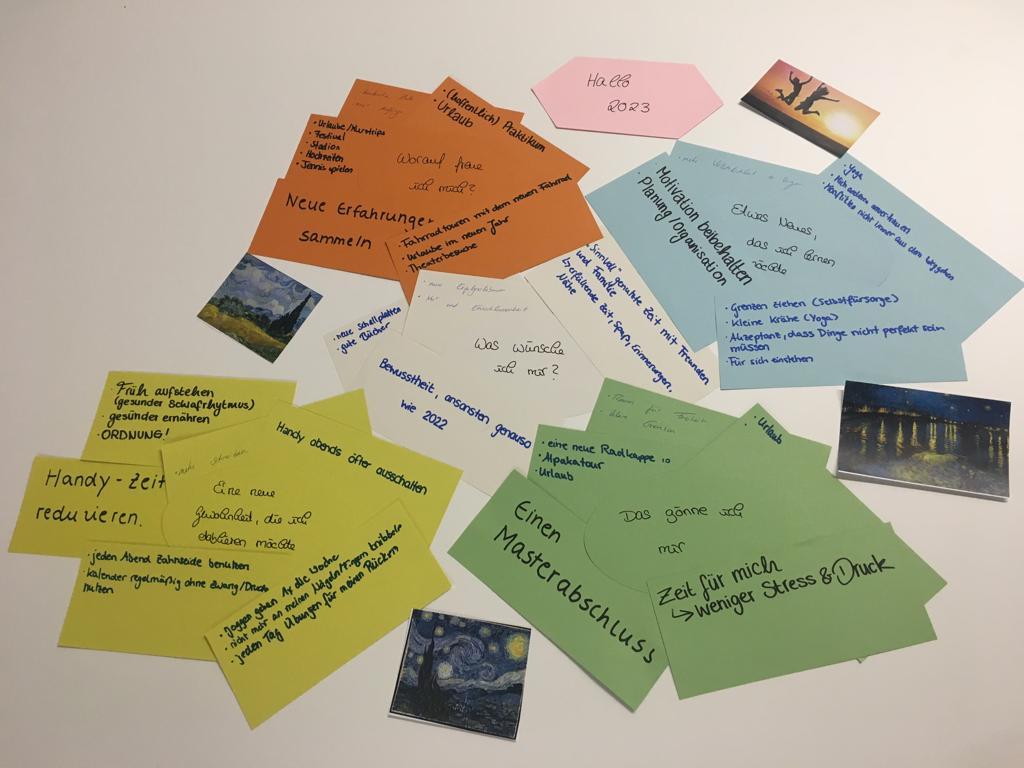 Hallo
2023
Worauf freue
ich mich?
• (hoffentlich) Praktikum
• Urlaub
• Urlaube/Kurztrips
• Festival
• Stadion
• Hochzeiten
• Tennis spielen
Neue Erfahrungen
sammeln
• Fahrradtouren mit dem neuen Fahrrad
• Urlaube im neuen Jahr
• Theaterbesuche
Etwas Neues,
das ich lernen
möchte
• Motivation beibehalten
• Planung/Organisation
• Yoga
• Grenzen ziehen (Selbstfürsorge)
• Kleine Krähe (Yoga)
• Akzeptanz, dass Dinge nicht perfekt sein
müssen
• Für sich einstehen
Was wünsche
ich mir?
• neue Schallplatten
• gute Bücher
Bewusstheit, ansonsten genauso
wie 2022
• "Sinnvoll" genutzte Zeit mit Freunden
und Familie
↳ erfüllende Zeit, Spaß, Erinnerungen,
Nähe
Eine neue
Gewohnheit, die ich
etablieren möchte
• Früh aufstehen
(gesunder Schlafrhytmus)
• gesünder ernähren
• ORDNUNG!
Handy abends öfter ausschalten
Handy-Zeit
reduzieren.
• jeden Abend Zahnseide benutzen
• Kalender regelmäßig ohne Zwang/Druck
nutzen
• Joggen gehen 1x die Woche
• nicht mehr an meinen Nägeln/Fingern knibbeln
• jeden Tag Übungen für meinen Rücken
Das gönne ich
mir
• eine neue Radkappe
• Alpakatour
• Urlaub
• Urlaub
Einen
Masterabschluss
Zeit für mich
↳ weniger Stress & Druck